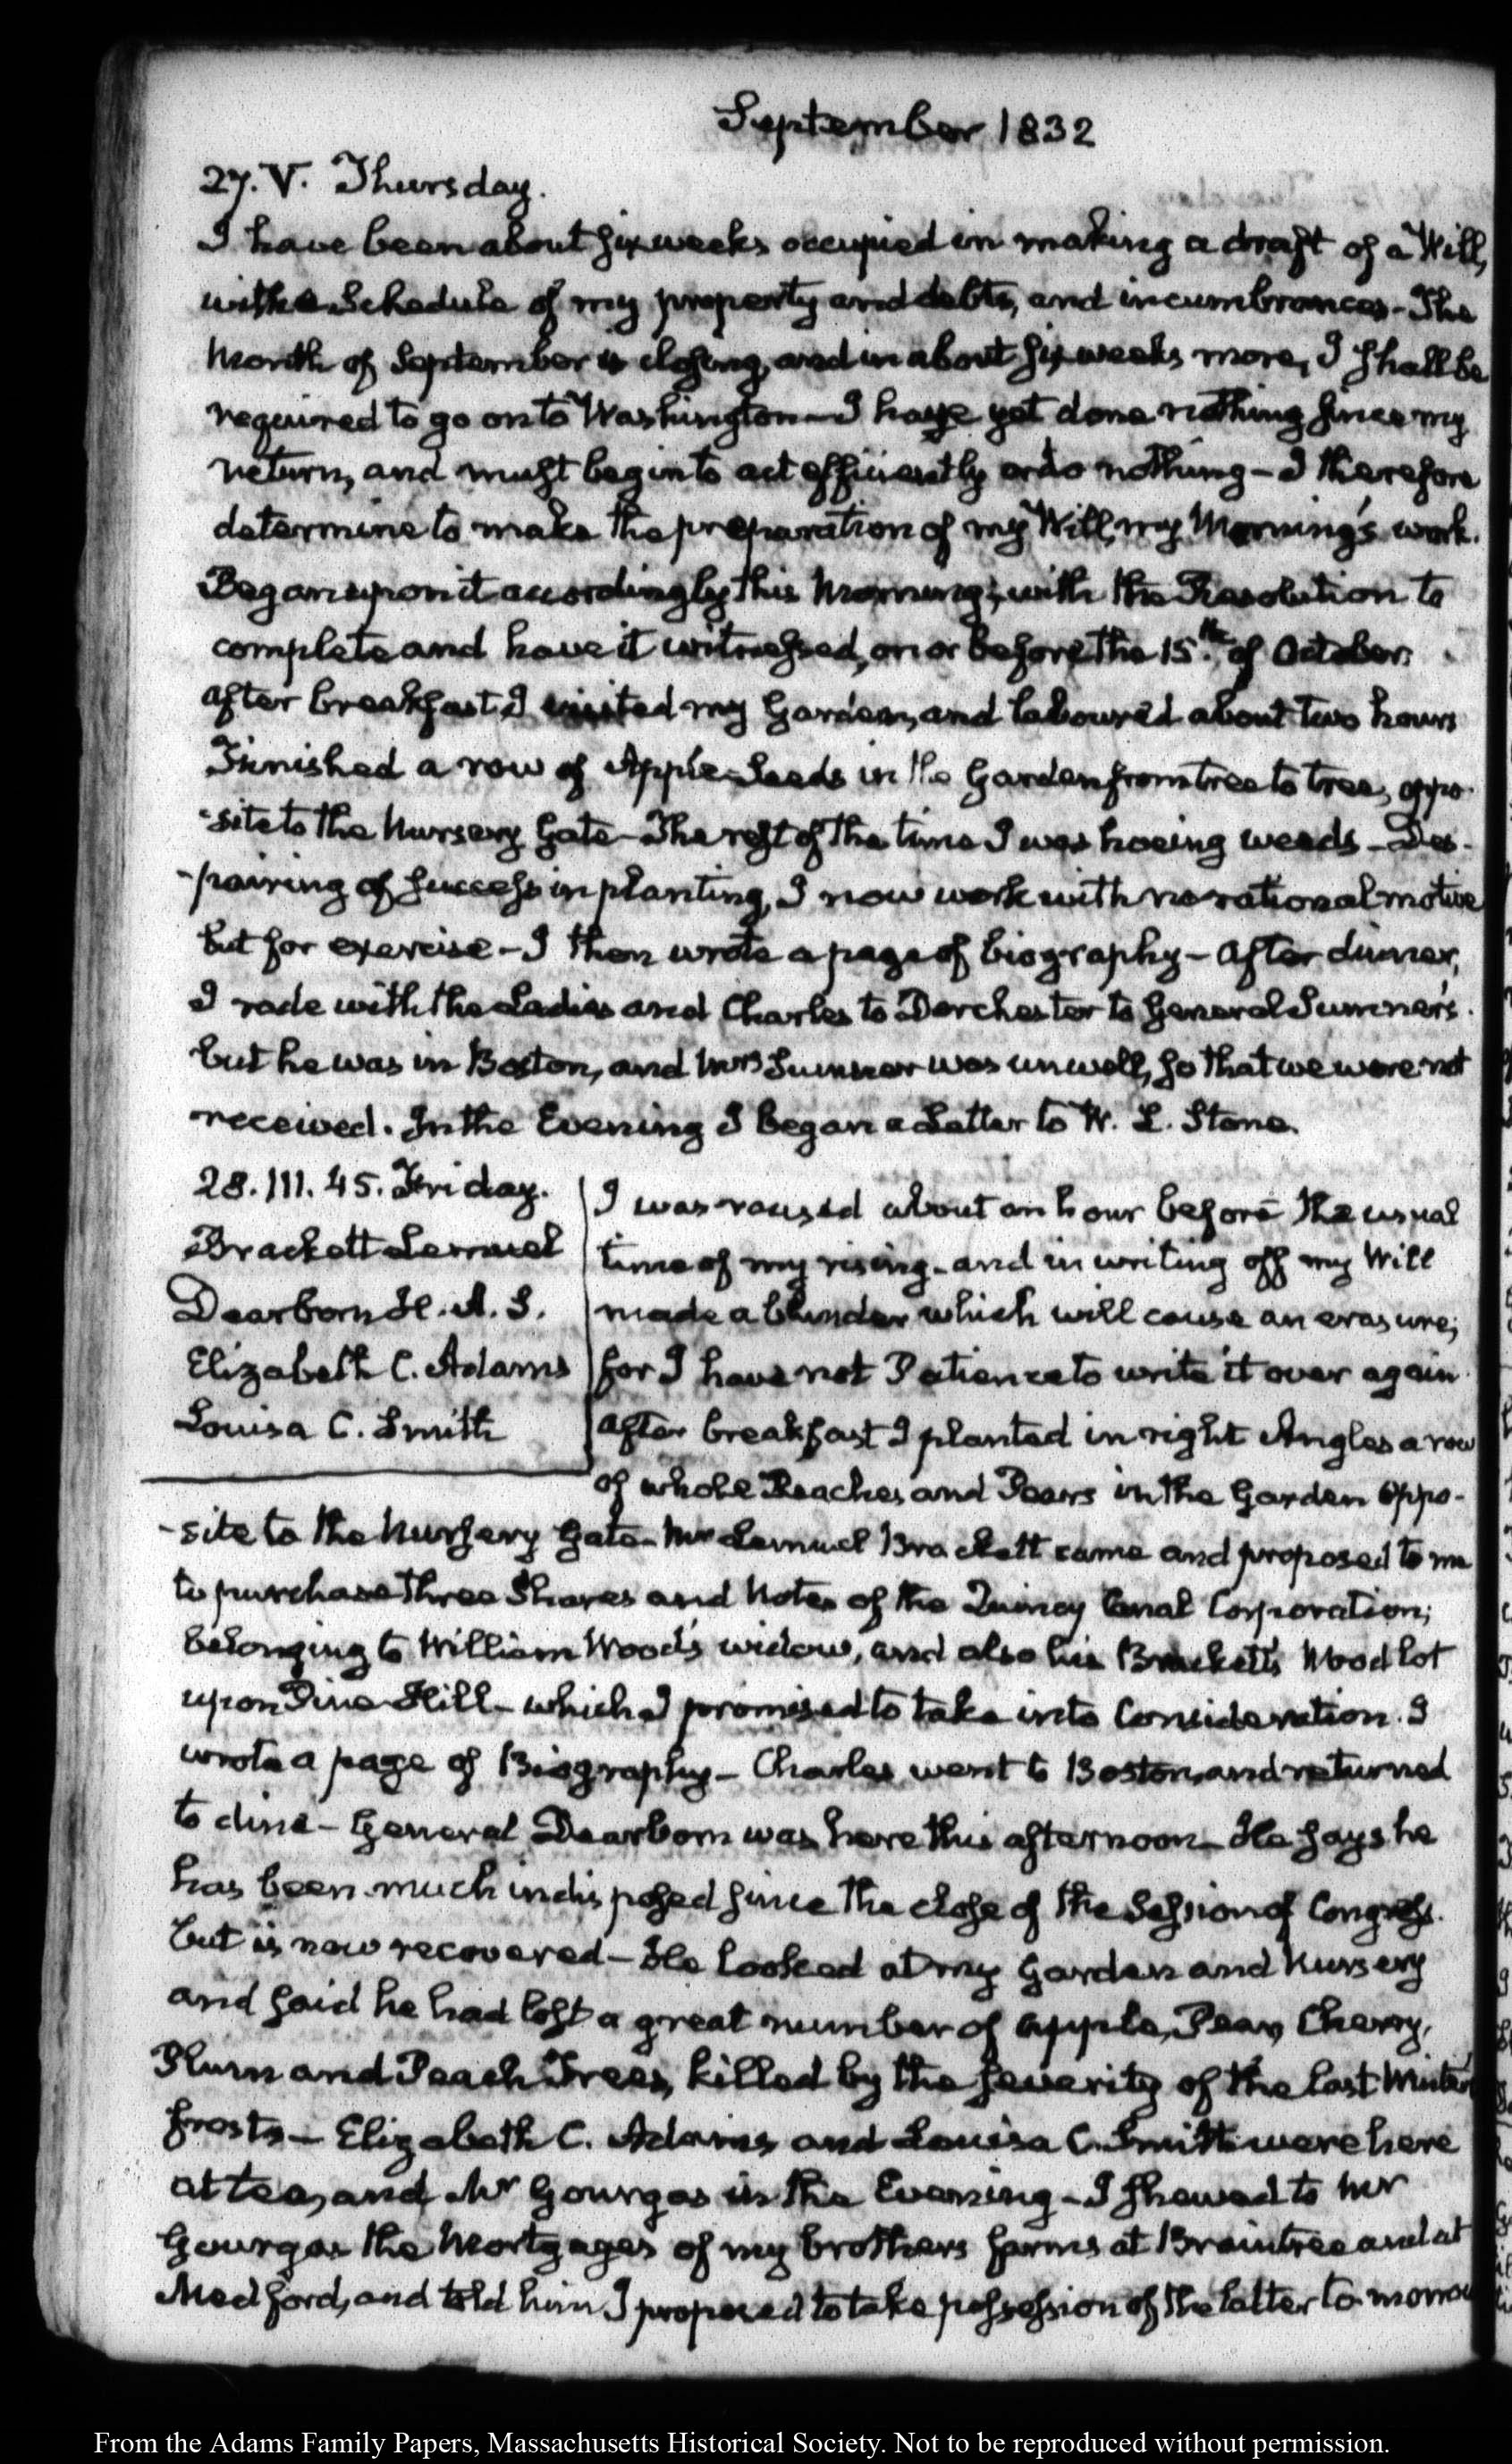 September 1832
27. V. Thursday.
I have been about six weeks occupied in making a draft of a Will,
with a Schedule of my property and debts, and incumbrances - The
Month of September is closing, and in about six weeks more, I shall be
required to go on to Washington - I have yet done nothing since my
return, and must begin to act efficiently or do nothing - I therefore
determine to make the preparation of my Will, my Morning's work.
Began upon it accordingly this Morning; with the Resolution to
complete and have it witnessed, on or before the 15.th of October.
After breakfast I visited my Garden, and laboured about two hours
Finished a row of Apple-Seeds in the Garden from tree to tree, oppo-
-site to the Nursery Gate - The rest of the time I was hoeing weeds - Des-
-pairing of success in planting, I now work with no rational motive
but for exercise - I then wrote a page of biography - After dinner,
I rode with the Ladies and Charles to Dorchester to General Sumner's.
but he was in Boston, and Mrs Sumner was unwell, so that we were not
received. In the Evening I began a Letter to W. L. Stone.
28. III. 45. Friday.
Brackett Lemuel
Dearborn H. A. S.
Elizabeth C. Adams
Louisa C. Smith
I was roused about an hour before the usual
time of my rising - and in writing off my Will
made a blunder which will cause an erasure;
for I have not Patience to write it over again
After breakfast I planted in right Angles a row
of whole Peaches and Pears in the Garden oppo-
-site to the Nursery Gate - Mr Lemuel Brackett came and proposed to me
to purchase three Shares and Notes of the Quincy Canal Corporation;
belonging to William Wood's widow, and also his Brackett's Wood lot
upon Pine Hill - which I promised to take into Consideration. I
wrote a page of Biography - Charles went to Boston, and returned
to dine - General Dearborn was here this afternoon - He says he
has been much indisposed since the close of the Session of Congress.
but is now recovered - He looked at my Garden and Nursery
and said he had lost a great number of Apple, Pear, Cherry,
Plum and Peach Trees, killed by the severity of the last Winter
frosts - Elizabeth C. Adams and Louisa C. Smith were here
at tea, and Mr Gourgas in the Evening - I shewed to Mr
Gourgas the Mortgages of my brothers farms at Braintree and at
Medford, and told him I proposed to take possession of the latter to morrow
From the Adams Family Papers, Massachusetts Historical Society. Not to be reproduced without permission.